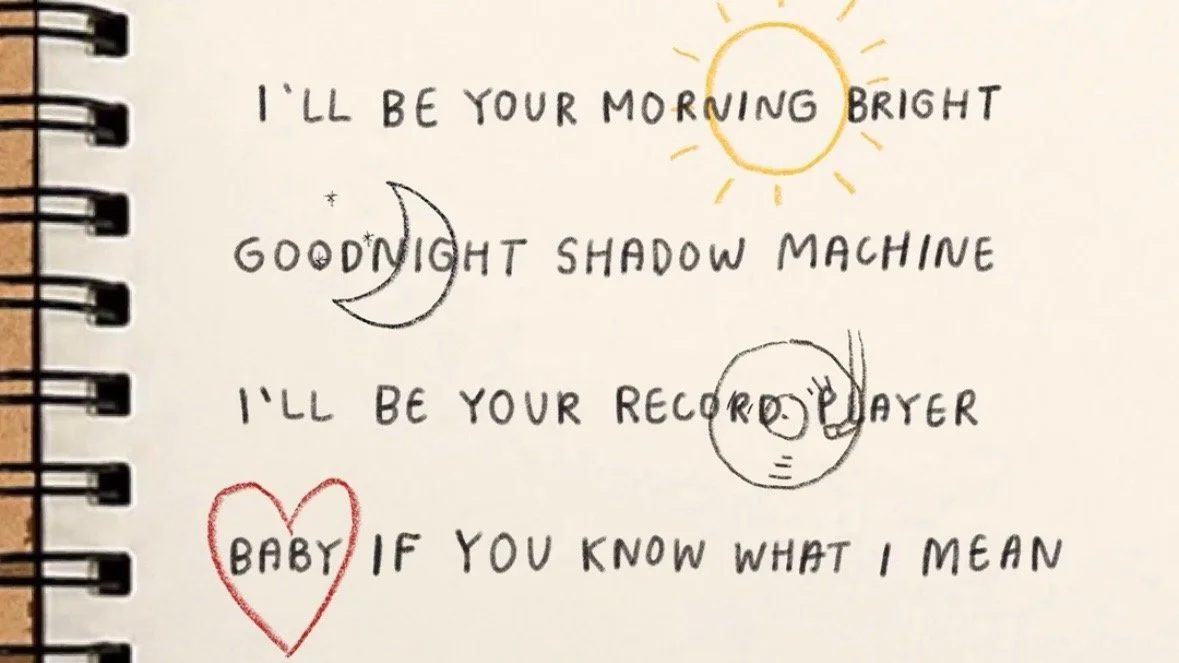 I'LL BE YOUR MORNING BRIGHT
GOODNIGHT SHADOW MACHINE
I'LL BE YOUR RECORD PLAYER
BABY IF YOU KNOW WHAT I MEAN